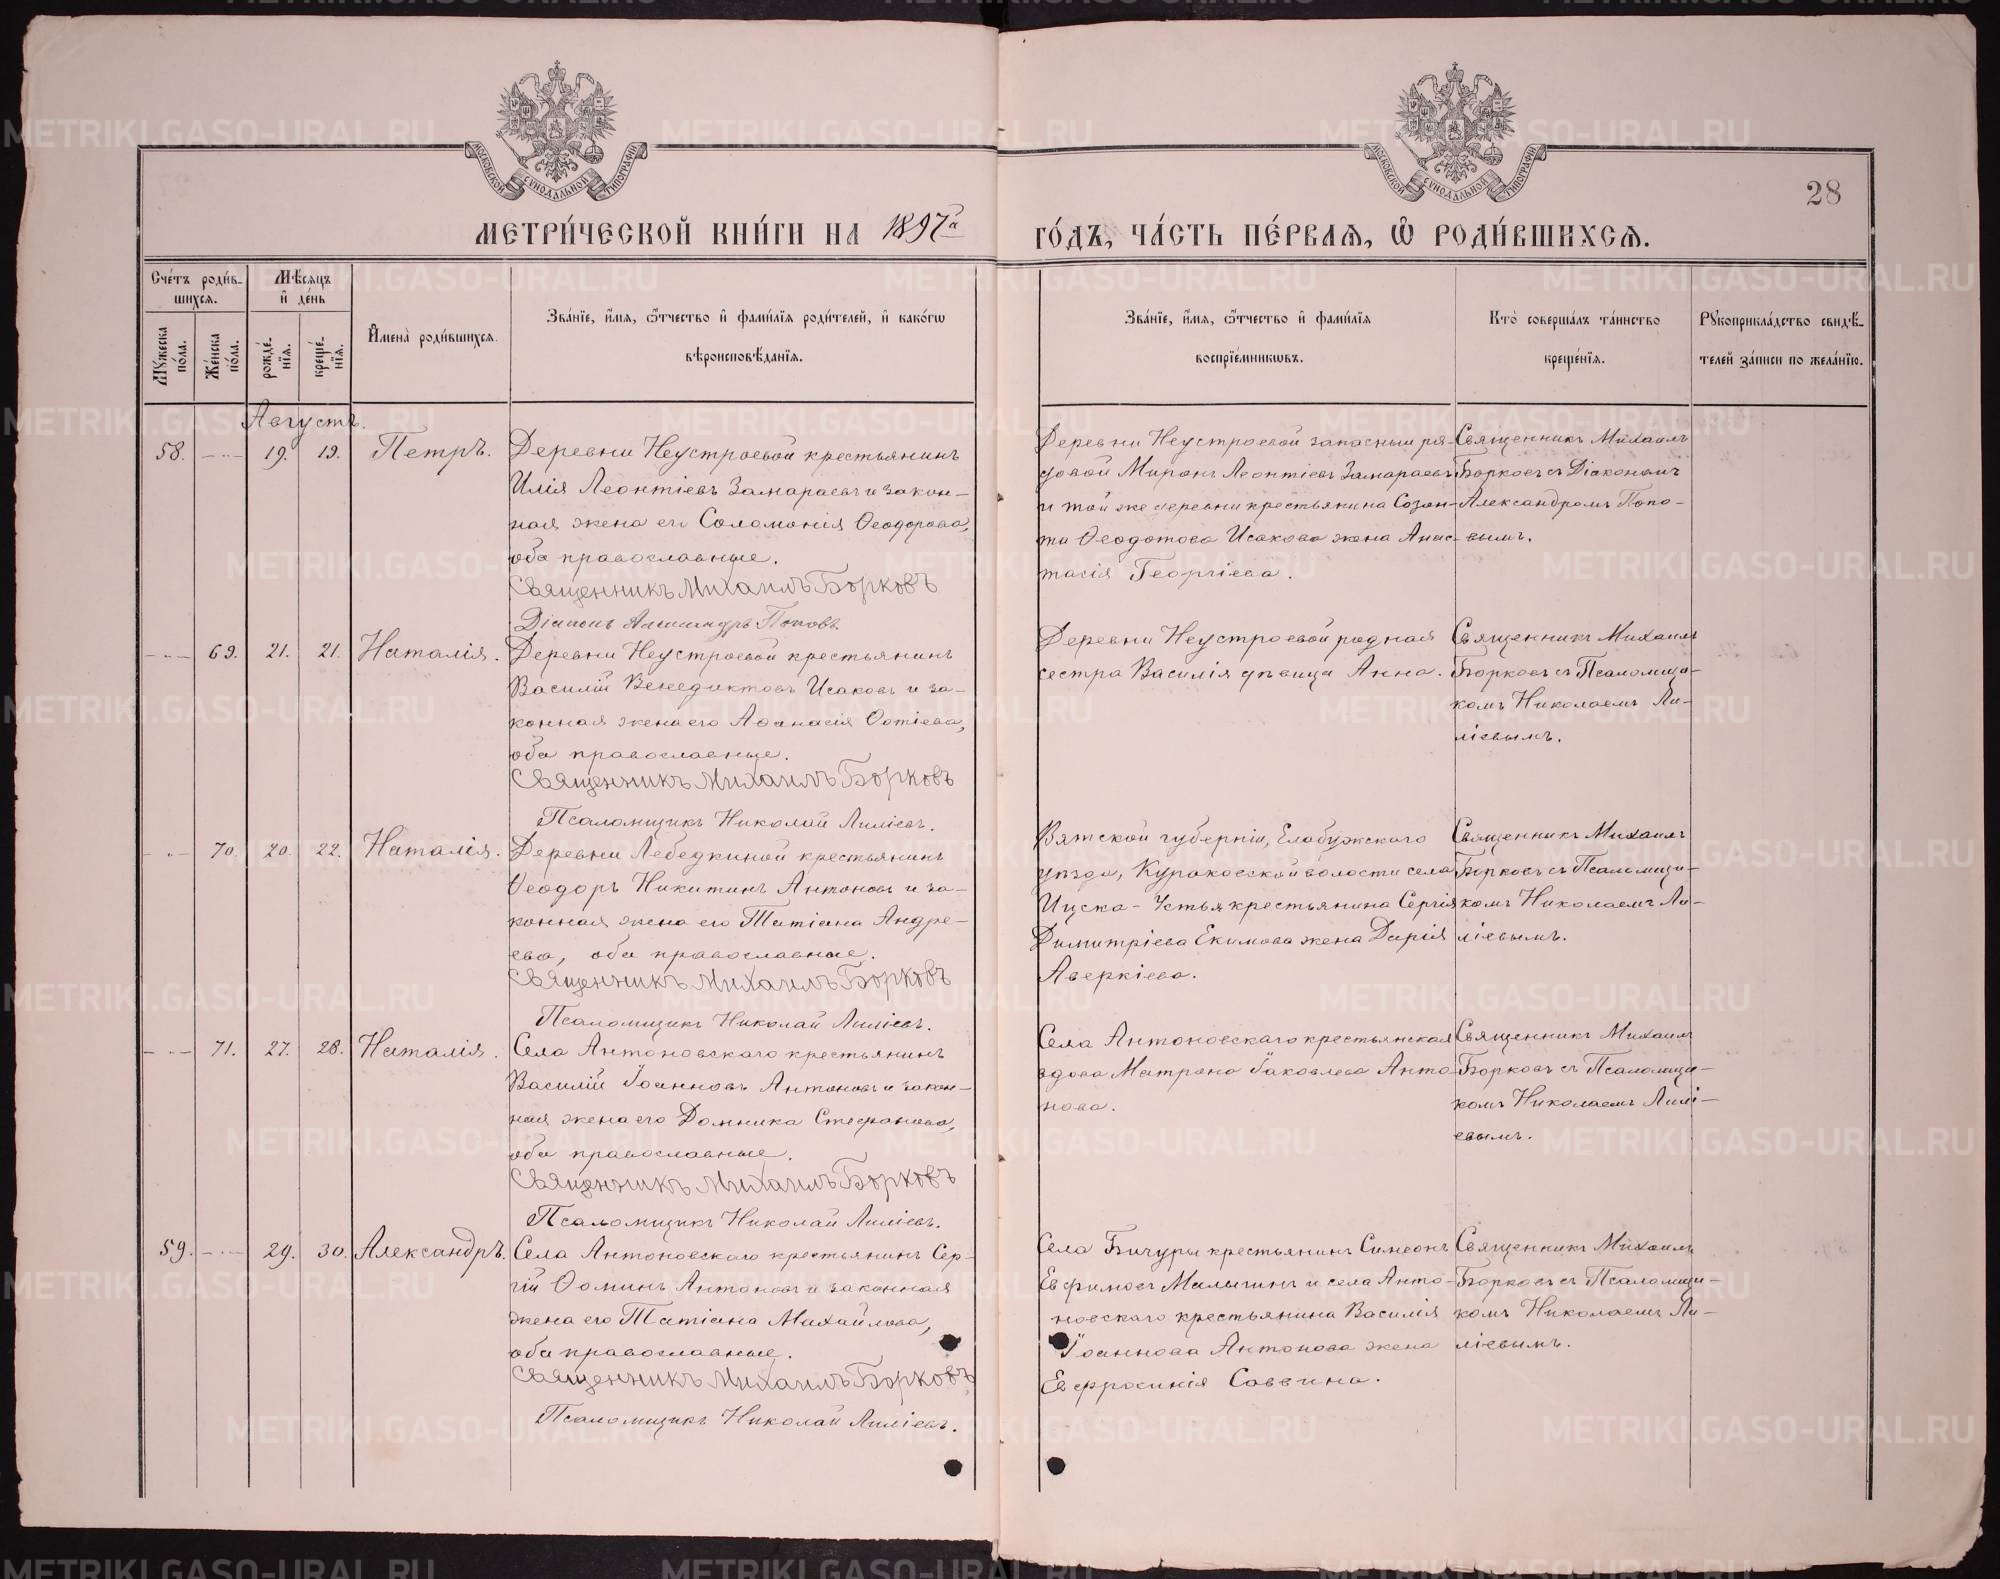 МОСКОВСКОЙ СУНОДАЛЬНОЙ ТИПОГРАФІИ
МОСКОВСКОЙ СУНОДАЛЬНОЙ ТИПОГРАФІИ
28
МЕТРИ́ЧЕСКОЙ КНИ́ГИ НА 1897й
ГО́ДЪ, ЧА́СТЬ ПЕ́РВАЯ, Ѡ РОДИ́ВШИХСЯ.
Сче́тъ роди́в-
шихся.
Мѣсяцъ
и де́нь
Му́жеска по́ла.
Же́нска по́ла.
рожде́-нія.
креще́-нія.
Имена̀ роди́вшихся.
Зва́ніе, и́мя, ѻ́тчество и фами́лія роди́телей, и како́гѡ
вѣроисповѣ́данія.
Зва́ніе, и́мя, ѻ́тчество и фами́лія
воспріе́мниковъ.
Кто̀ соверша́лъ та́инство
креще́нія.
Рукоприкла́дство свидѣ́-
телей за́писи по жела́нію.
Августъ.
58. 19. 19. Петръ.
Деревни Неустроевой крестьянинъ
Илія Леонтіевъ Замараевъ и закон-
ная жена его Соломонія Ѳеодорова,
оба православные.
Священникъ Михаилъ Борковъ
Діаконъ Александръ Поповъ.
Деревни Неустроевой запасный ря-
довой Миронъ Леонтіевъ Замараевъ
и той же деревни крестьянина Созон-
та Ѳеодотова Исакова жена Анас-
тасія Георгіева.
Священникъ Михаилъ
Борковъ съ Діакономъ
Александромъ Попо-
вымъ.
69. 21. 21. Наталія.
Деревни Неустроевой крестьянинъ
Василій Венедиктовъ Исаковъ и за-
конная жена его Аѳанасія Ѳотіева,
оба православные.
Священникъ Михаилъ Борковъ
Псаломщикъ Николай Лиліевъ.
Деревни Неустроевой родная
сестра Василія дѣвица Анна.
Священникъ Михаилъ
Борковъ съ Псаломщи-
комъ Николаемъ Ли-
ліевымъ.
70. 20. 22. Наталія.
Деревни Лебедкиной крестьянинъ
Ѳеодоръ Никитинъ Антоновъ и за-
конная жена его Татіана Андре-
ева, оба православные.
Священникъ Михаилъ Борковъ
Псаломщикъ Николай Лиліевъ.
Вятской губерніи, Елабужскаго
уѣзда, Кураковской волости села
Ицска-Устья крестьянина Сергія
Димитріева Екимова жена Дарія
Аверкіева.
Священникъ Михаилъ
Борковъ съ Псаломщи-
комъ Николаемъ Ли-
ліевымъ.
71. 27. 28. Наталія.
Села Антоновскаго крестьянинъ
Василій Іоанновъ Антоновъ и закон-
ная жена его Домника Стефанова,
оба православные.
Священникъ Михаилъ Борковъ
Псаломщикъ Николай Лиліевъ.
Села Антоновскаго крестьянская
вдова Матрона Іаковлева Анто-
нова.
Священникъ Михаилъ
Борковъ съ Псаломщи-
комъ Николаемъ Лилі-
евымъ.
59. 29. 30. Александръ.
Села Антоновскаго крестьянинъ Сер-
гій Ѳоминъ Антоновъ и законная
жена его Татіана Михайлова,
оба православные.
Священникъ Михаилъ Борковъ
Псаломщикъ Николай Лиліевъ.
Села Бичуры крестьянинъ Симеонъ
Евфимовъ Малыгинъ и села Анто-
новскаго крестьянина Василія
Іоаннова Антонова жена
Евфросинія Саввина.
Священникъ Михаилъ
Борковъ съ Псаломщи-
комъ Николаемъ Ли-
ліевымъ.
METRIKI.GASO-URAL.RU